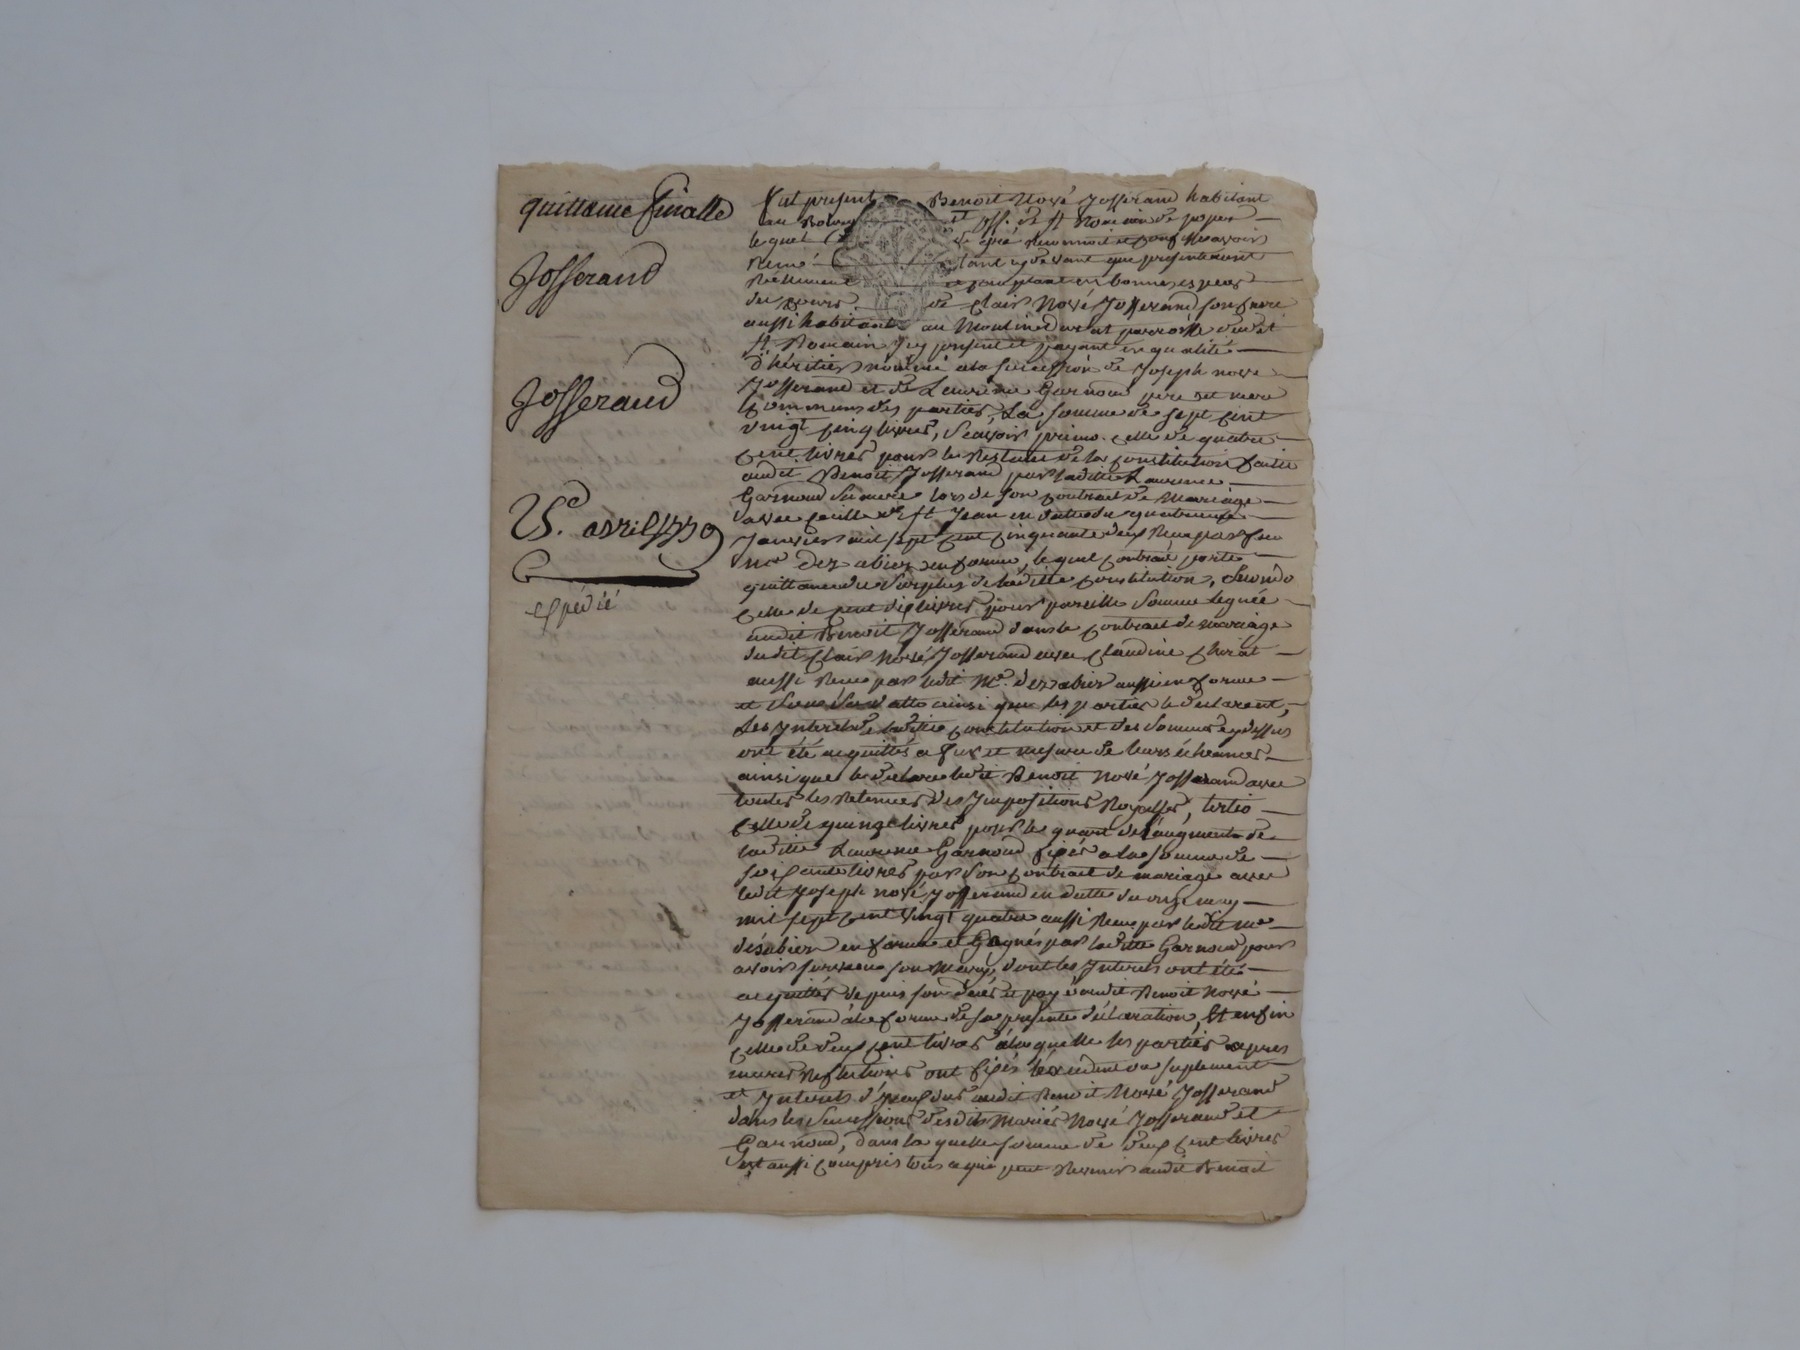 quittance finalle
Josserand
Josserand
25e. avril 1779
expédié
fut present Benoit Nové Josserand habitant
au Bourg et pss. de st Romain de popes
lequel de gré reconnoit et confesse avoir
reçu tant cy devant que presentement
réellement et comptant en bonnes especes
du cours de Clair Nové Josserand son frere
aussi habitant au Moulin parroisse dudit
st. Romain icy present et payant en qualité
d'héritier nommé a la succession de Joseph nové
Josserand et de Laurence Garnoud pere et mere
communs des parties, La somme de sept cent
vingt cinq livres, scavoir primo. celle de quatre
cent livres pour le restant de la constitution faitte
audit Benoit Josserand par laditte Laurence
Garnoud sa mere lors de son contract de Mariage
avec st Jean en datte du quatorze
Janvier mil sept cent cinquante deux reçu par feu
me. dezabier en forme, lequel contract porte
quittance du surplus de laditte constitution, Secondo
celle de cent dix livres pour pareille somme leguée
audit Benoit Josserand dans le contract de mariage
dudit Clair Nové Josserand avec Claudine Chirat
aussi reçu par ledit Me. dezabier aussi en forme
et sous sa datte ainsi que les parties le declarent,
Les Interets de laditte constitution et des sommes cy dessus
ont été acquittés a fur et mesure de leurs echeances
ainsi que le declare ledit Benoit Nové Josserand avec
toutes les retenues des Impositions Royalles, tertio
celle de quinze livres pour le quart de l'augment de
laditte Laurence Garnoud fixée a la somme de
soixante livres par son contract de mariage avec
ledit Joseph nové Josserand en datte du onze may
mil sept cent vingt quatre aussi reçu par ledit me
desabier en forme et Gagnés par laditte Garnoud pour
avoir survecu son Mary, dont les Interets ont été
acquittés depuis son décés et payé audit Benoit Nové
Josserand à la forme de sa presente déclaration, Et enfin
celle de deux cent livres à laquelle les parties apres
mures reflections ont fixés l'excedent ou suplement
et Interets d'yceux dus audit Benoit Nové Josserand
dans les successions desdits Mariés Nové Josserand et
Garnoud, dans laquelle somme de deux cent livres
est aussi compris tous ce qui peut revenir audit Benoit